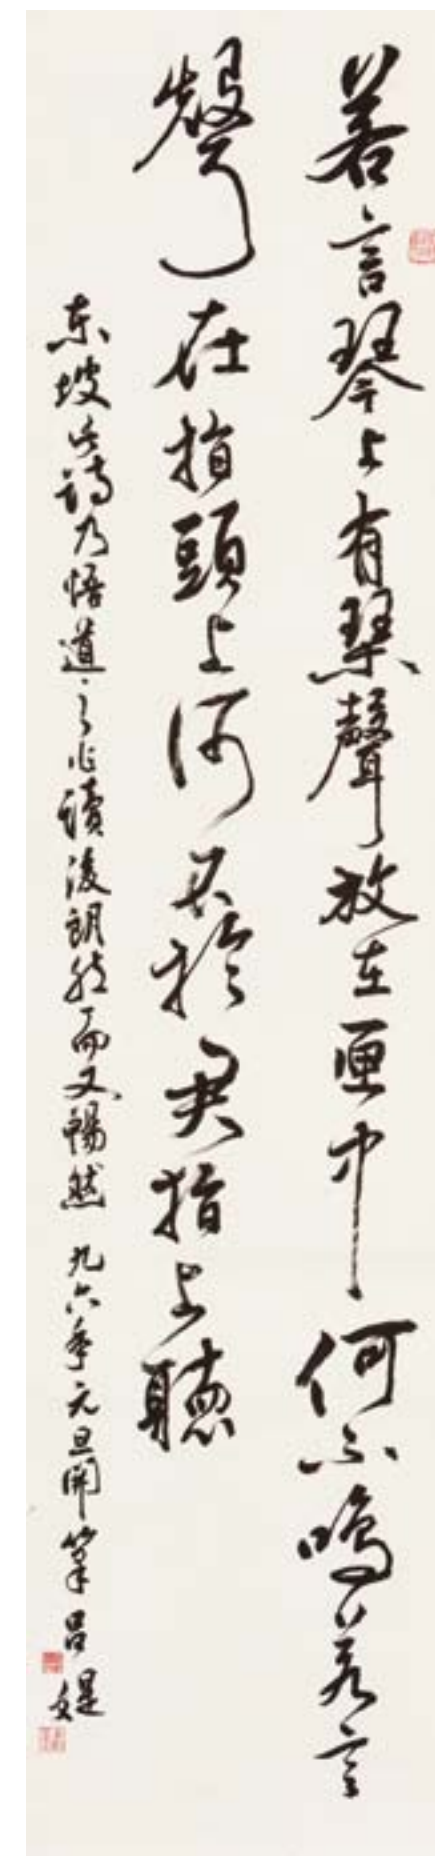 若言琴上有琴聲放在匣中何不鳴若言
聲在指頭上何不於君指上聽
东坡此詩乃悟道之作讀後朗然而又暢然 九六年元旦開筆吕媞